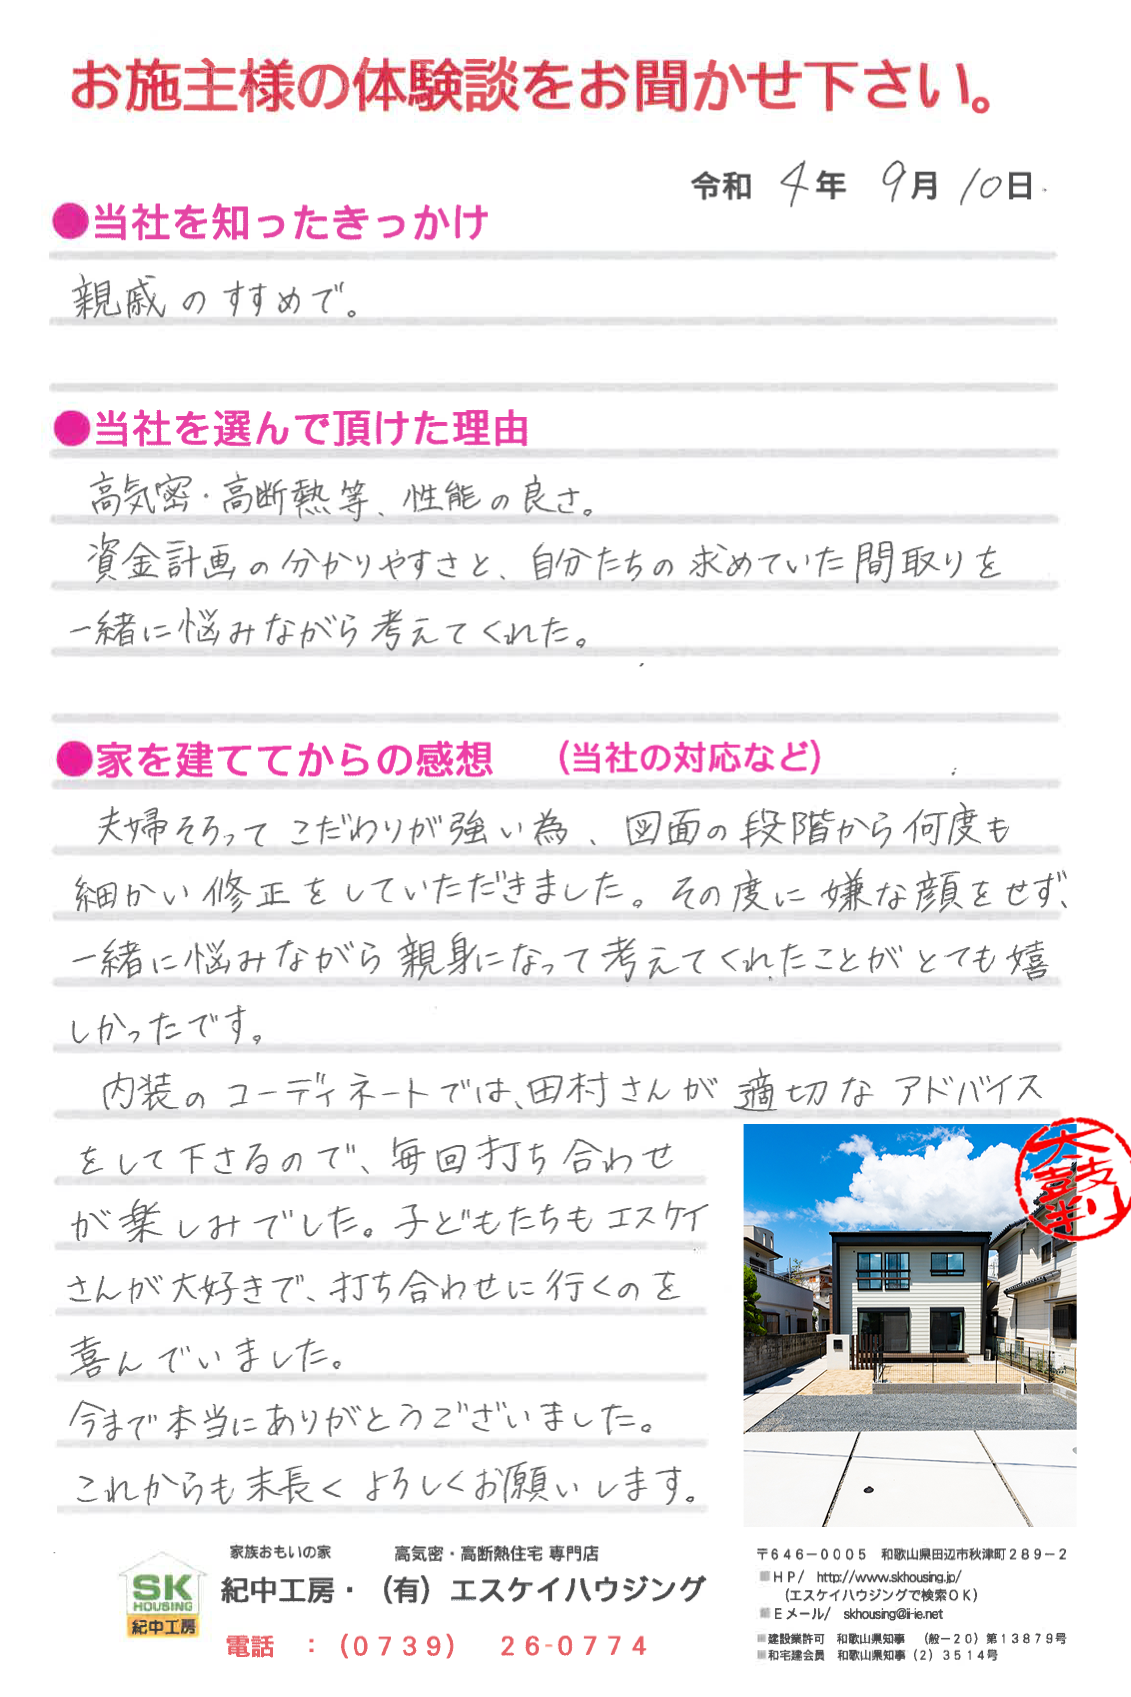 お施主様の体験談をお聞かせ下さい。
令和 4年 9月 10日
●当社を知ったきっかけ
親戚のすすめで。
●当社を選んで頂けた理由
高気密・高断熱等、性能の良さ。
資金計画の分かりやすさと、自分たちの求めていた間取りを
一緒に悩みながら考えてくれた。
●家を建ててからの感想 (当社の対応など)
夫婦そろってこだわりが強い為、図面の段階から何度も
細かい修正をしていただきました。その度に嫌な顔をせず、
一緒に悩みながら親身になって考えてくれたことがとても嬉
しかったです。
内装のコーディネートでは、田村さんが適切なアドバイス
をして下さるので、毎回打ち合わせ
が楽しみでした。子どもたちもエスケイ
さんが大好きで、打ち合わせに行くのを
喜んでいました。
今まで本当にありがとうございました。
これからも末長くよろしくお願いします。
太鼓判
家族おもいの家 高気密・高断熱住宅 専門店
SK
HOUSING
紀中工房
紀中工房・(有)エスケイハウジング
電話 :(0739) 26-0774
〒646-0005 和歌山県田辺市秋津町289-2
■HP/ http://www.skhousing.jp/
(エスケイハウジングで検索OK)
■Eメール/ skhousing@ii-ie.net
■建設業許可 和歌山県知事 (般-20)第13879号
■和宅建会員 和歌山県知事(2)3514号